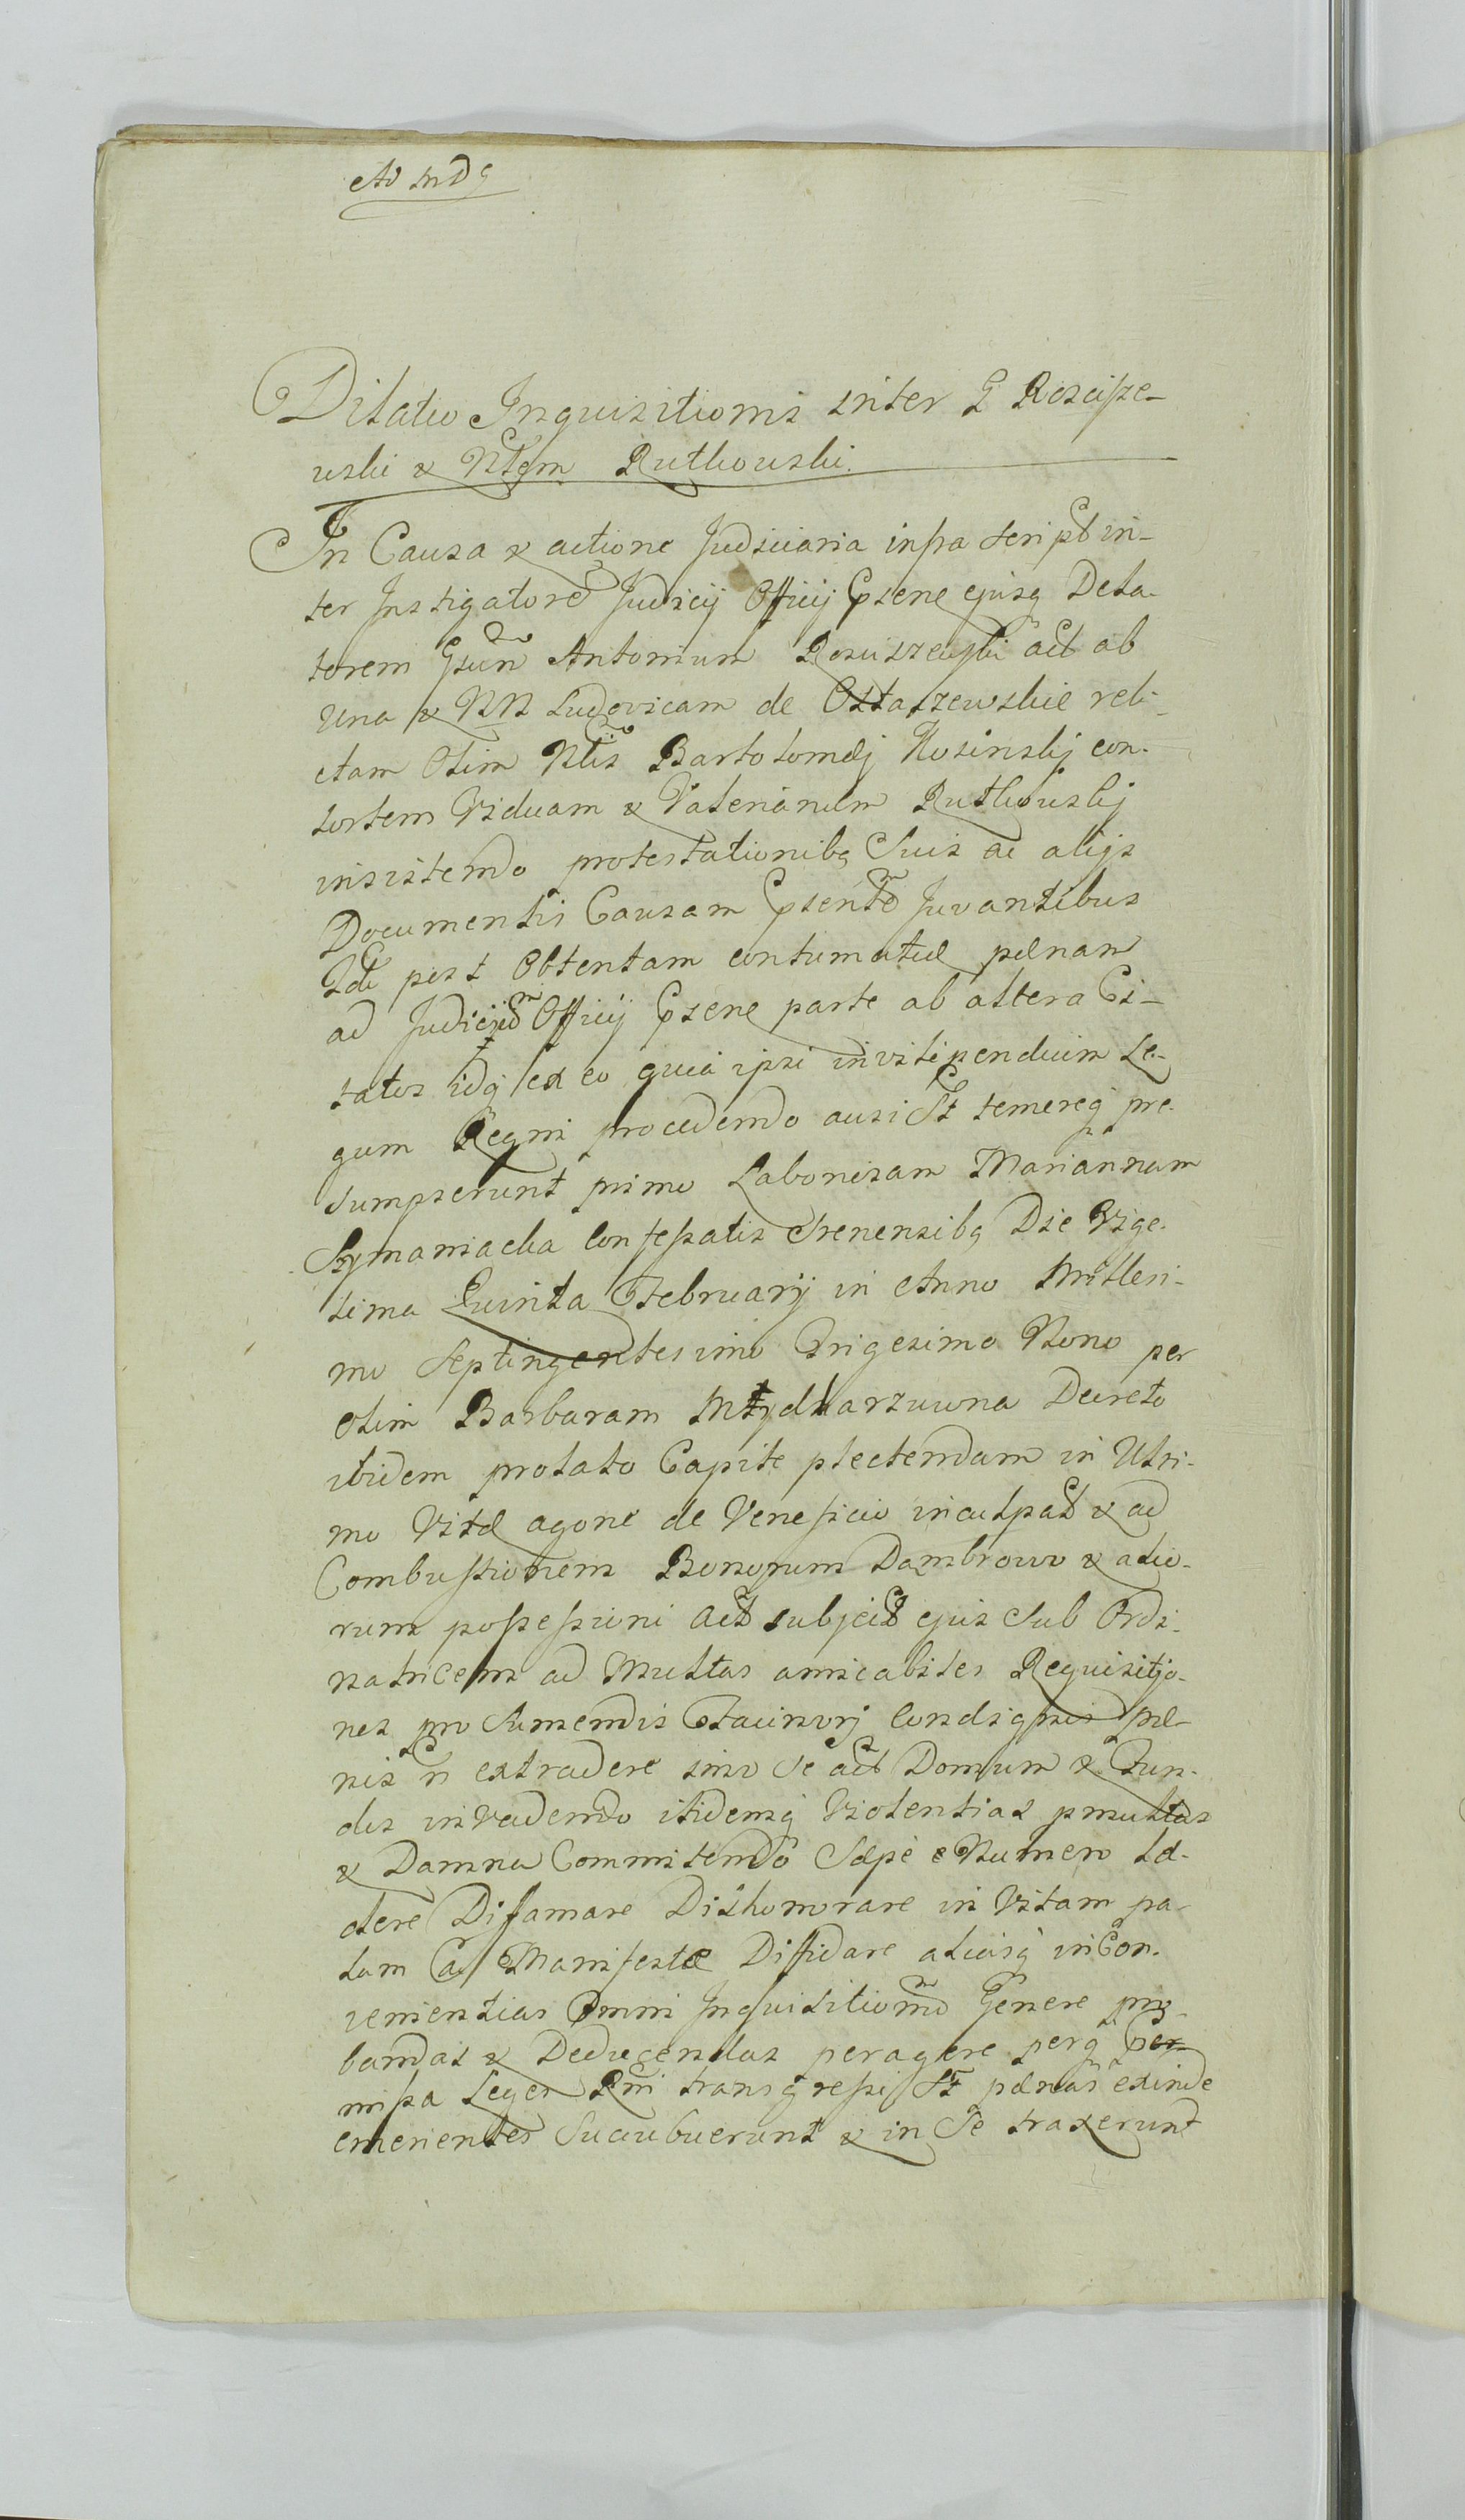 Ad Indq
Dilatio Inquisitionis inter G Roscisze-
wski & Nlem Rutkowski.
In Causa & actione Judiciaria infra script in-
ter Instigatore Judicij Officij Psene ejusq Dela-
torem Gsum Antonium Rosciszewski act ab
una & NN Ludovicam de Ostaszewskie reli-
ctam Olim Nlis Bartolomæj Kosinskj con-
sortem Viduam & Valerianum Rutkowskj
insistendo protestationibq Suis ac alijs
Documentis Causam Psente Juvantibus
Ide post Obtentam contumatiæ pænam
ad Judiciu Officij Psene parte ab altera Ci-
tatos idq ex eo quia ipsi in vilipendium Le-
gum Regni procedendo ausi St temereq pre-
sumpserunt primo Laboriosam Mariannam
Szymaniacka Confessatis Srenensibq Die Vige-
sima Quinta February in Anno Millesi-
mo Septingentesimo Trigesimo Nono per
olim Barbaram Młydkarzuwna Decreto
ibidem prolato Capite plectendam in Ultri-
mo Vitæ agone de Veneficio inculpat & ad
Combustionem Bonorum Dąmbrowo & alio-
rum possessioni act subject ejus Sub Ordi-
natricem ad Multas amicabiles Requisitjo-
nes pro Sumendis Facinorj Condignis pæ-
nis n extradere imo Se act Domum & Fun-
dis invadendo itidemq Violentias pmultas
& Damna Commitendo Sæpe e Numero Læ-
dere Difamare Dishonorare in Vitam pa-
lam Ca Manifeste Diffidare aliasq inCon-
venientias Omni Inquisitionu Genere pro-
bandas & Deducendas peragere perq per
missa Leges Rni transgressi St pænas exinde
emerientes Sucubuerunt & in Se traxerunt